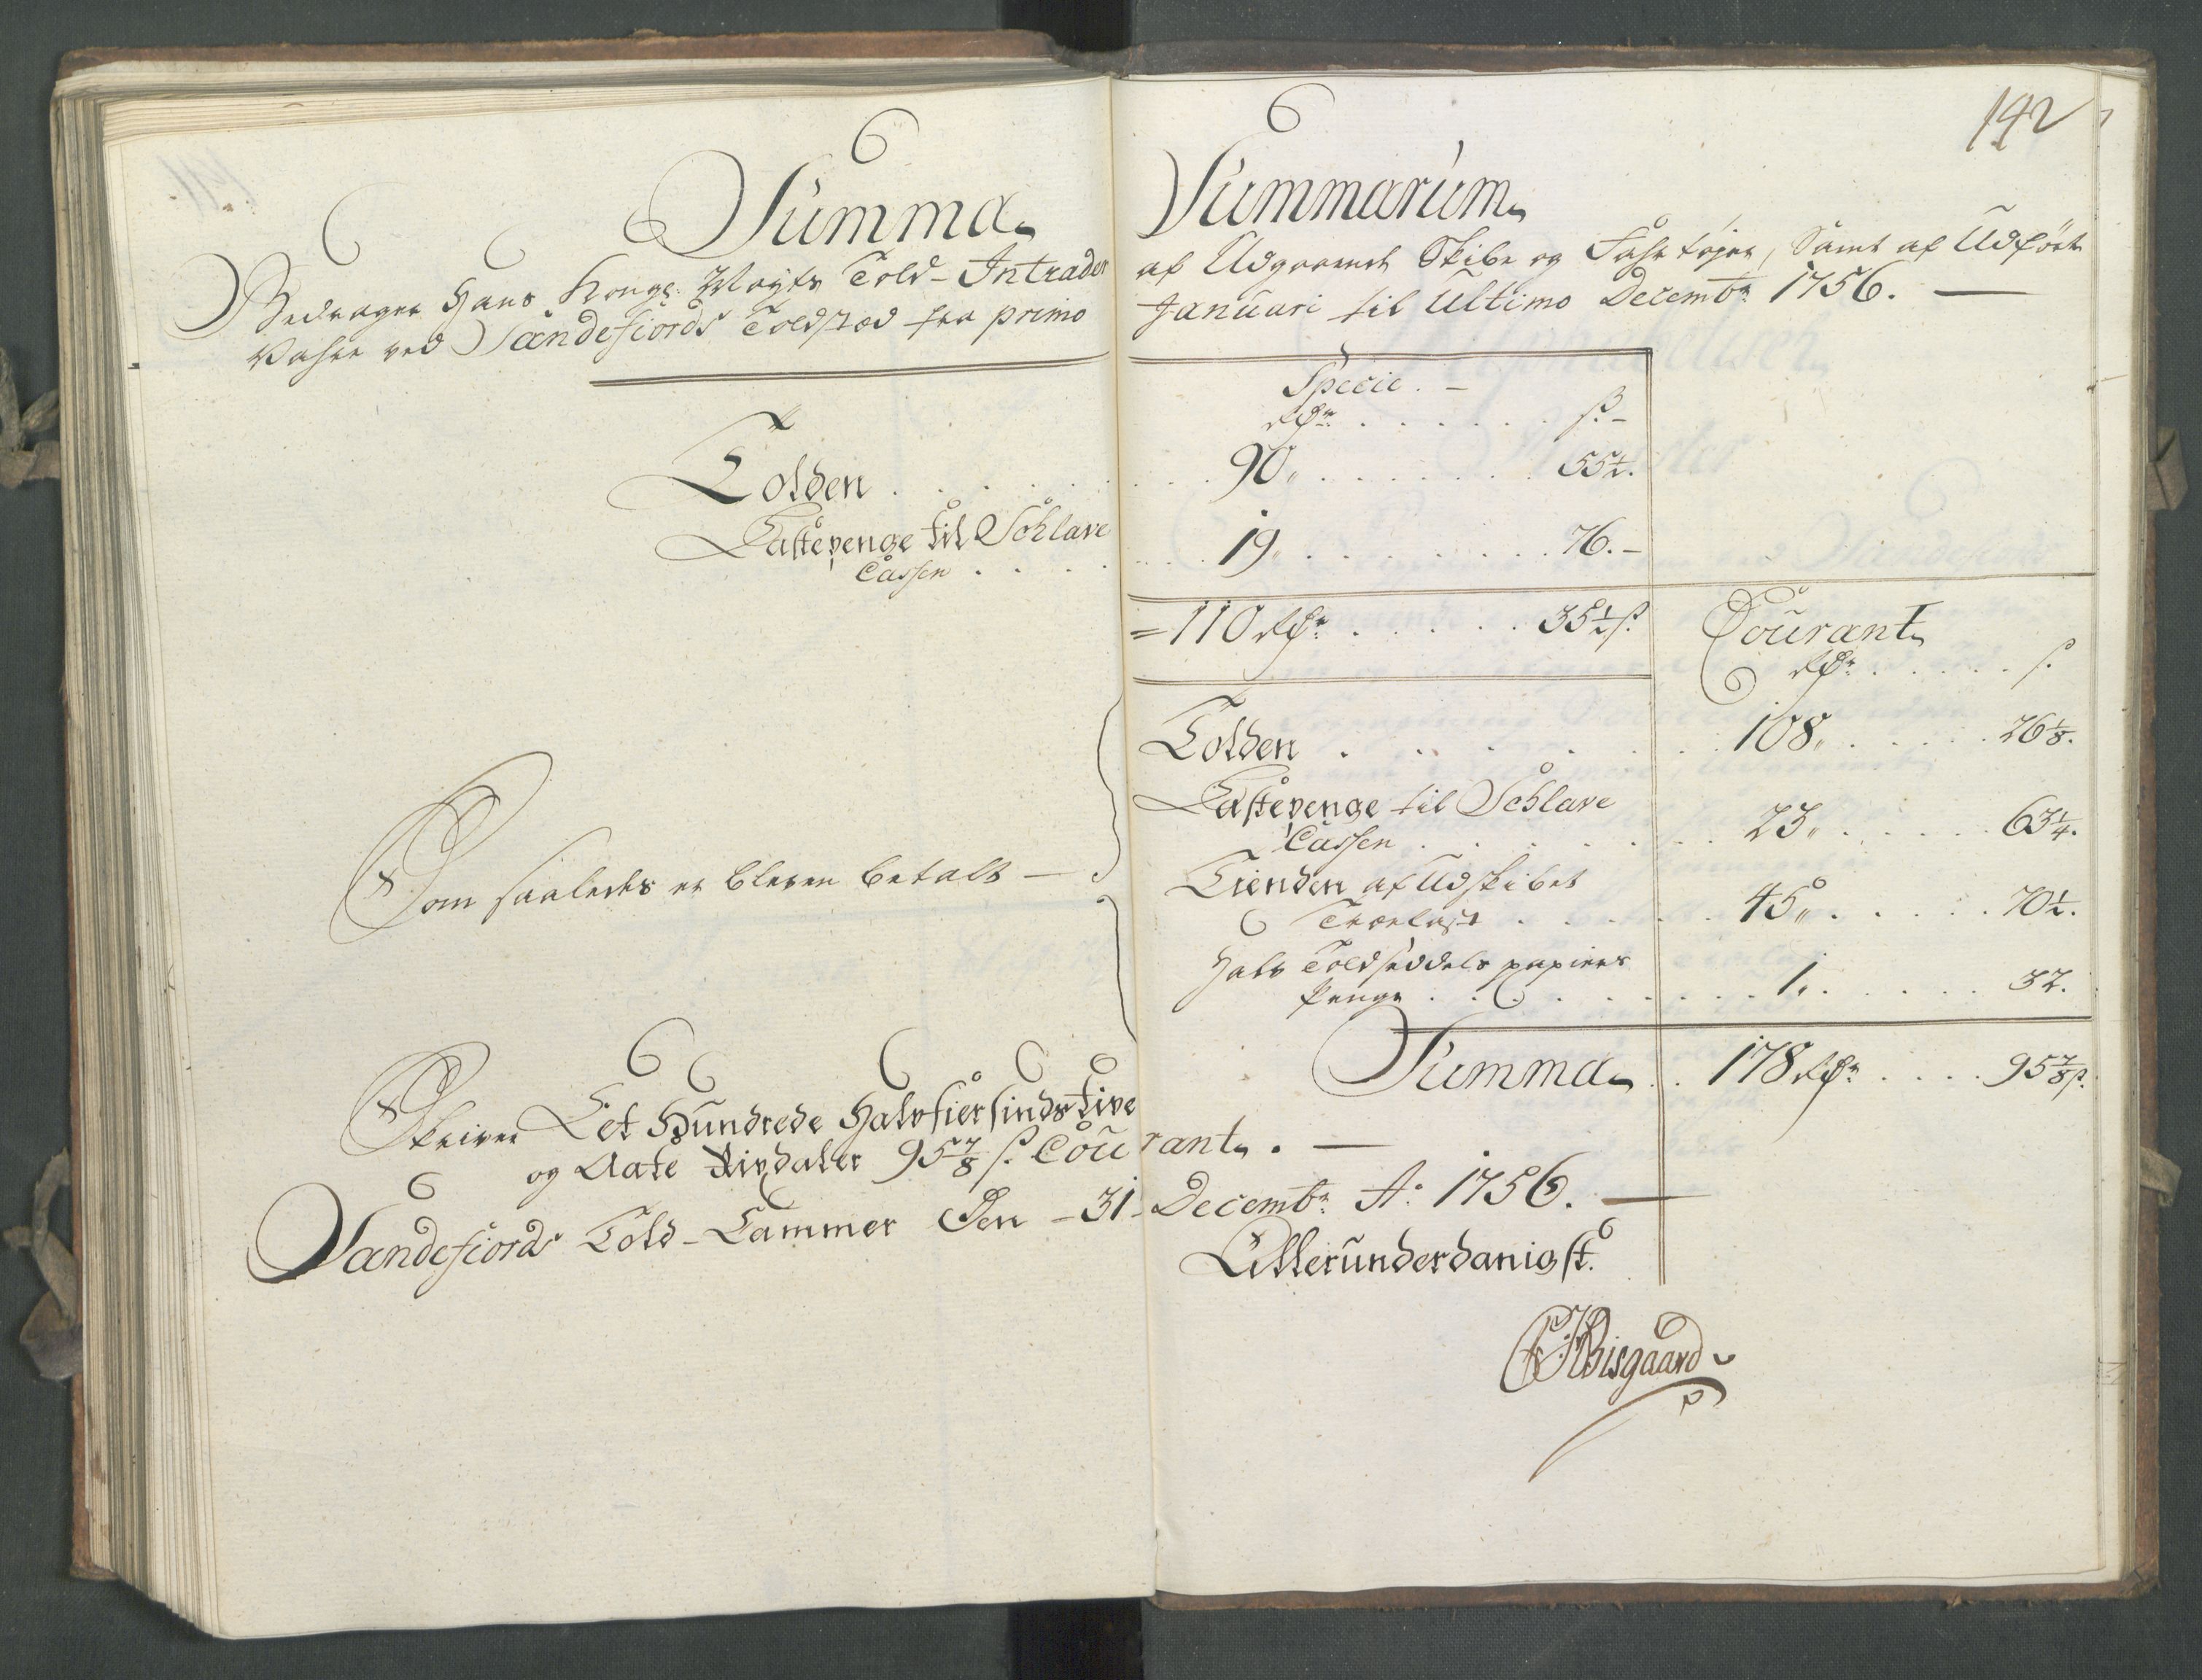 142
Summa Summarum
Bedrager Hans Kongl: Mayts Told-Intrader af Udgaaende Skibe og Fahrtøjer, Samt af Udførte
Vahre ved Sandefiords Toldstæd fra primo Januari til Ultimo Decembr 1756. —
Specie. —
rdr . . . . . . ß. –
Tolden . . . . . . 90„ . . . . . . 55 1/2.
Lastepenge til Schlave
Cassen . . . . 19„ . . . . . . 76. –
= 110 rdr . . . . . 35 1/2 ß. Courant
rdr . . . . . ß.
Tolden . . . . . . 108„ . . . . . 26 1/8.
Lastepenge til Schlave
Cassen . . . . . . 23„ . . . . . 63 1/4.
Som saaledes er bleven betalt — Tienden af Udskibet
Trælast . . . . . 45„ . . . . . 70 1/2.
Halv Toldseddels papiirs
Penge . . . . . . . 1„ . . . . . 32.
Summa . . 178 rdr . . . . 95 7/8 ß.
Skriver Et Hundrede Halvfiersinds Tive
og Aate Rixdaler 95 7/8 ß. Courant. —
Sandefiords Told-Cammer Den – 31 – Decembr Ao 1756. —
Allerunderdanigst.
Bisgaard